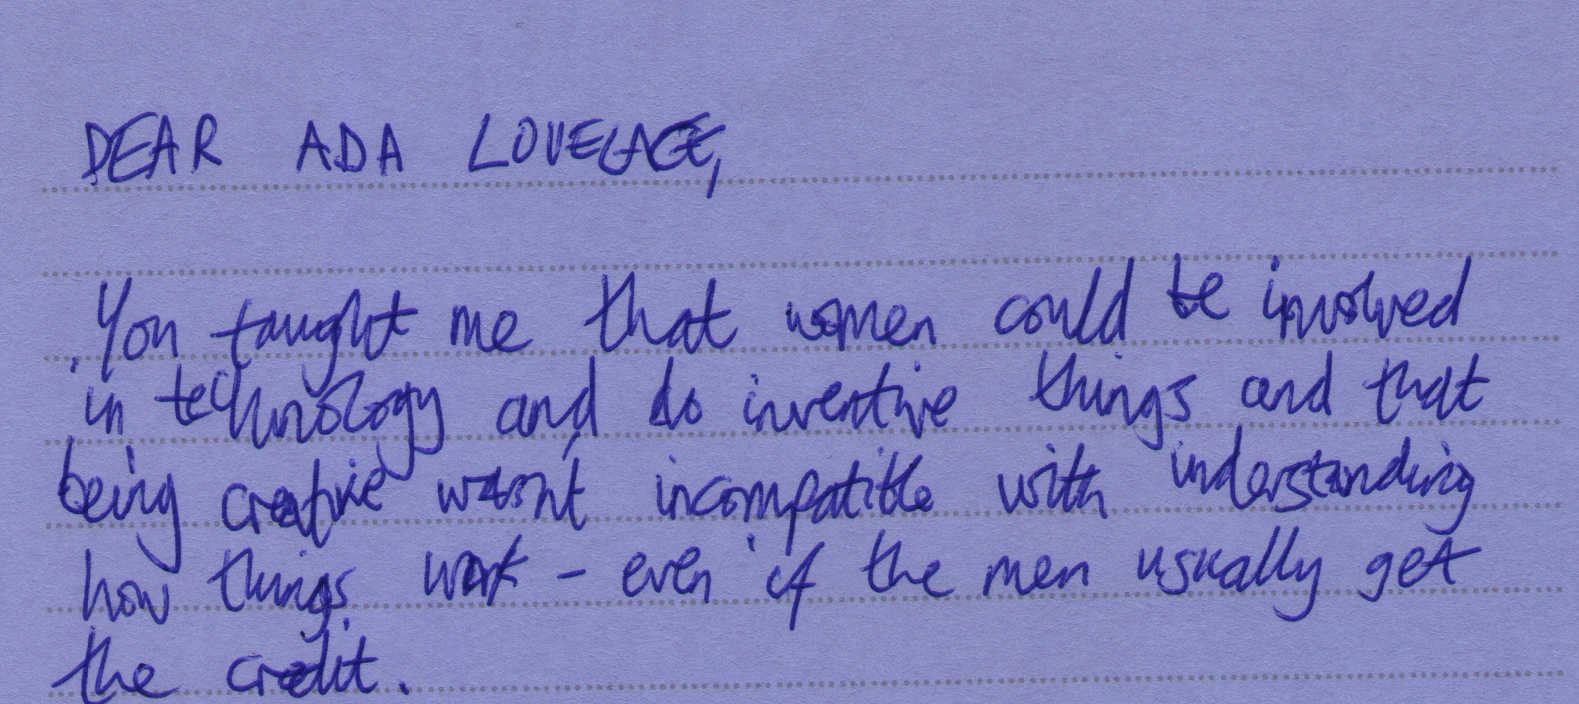 DEAR ADA LOVELACE,
You taught me that women could be involved
in technology and do inventive things and that
being creative wasn't incompatible with understanding
how things work - even if the men usually get
the credit.